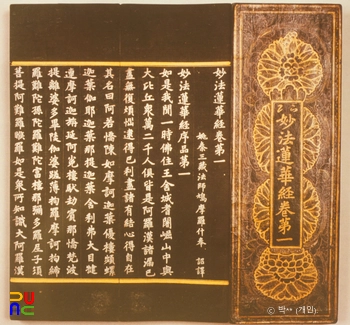 妙法蓮華經卷第一
妙法蓮華經卷第一
姚秦三藏法師鳩摩羅什奉 詔譯
妙法蓮華經序品第一
如是我聞一時佛住王舍城耆闍崛山中與
大比丘衆萬二千人俱皆是阿羅漢諸漏已
盡無復煩惱逮得己利盡諸有結心得自在
其名曰阿若憍陳如摩訶迦葉優樓頻螺
迦葉伽耶迦葉那提迦葉舍利弗大目犍
連摩訶迦旃延阿㝹樓馱劫賓那憍梵波
提離婆多畢陵伽婆蹉薄拘羅摩訶拘絺
羅難陀孫陀羅難陀富樓那彌多羅尼子須
菩提阿難羅睺羅如是衆所知識大阿羅漢
ⓒ 박** (개인)